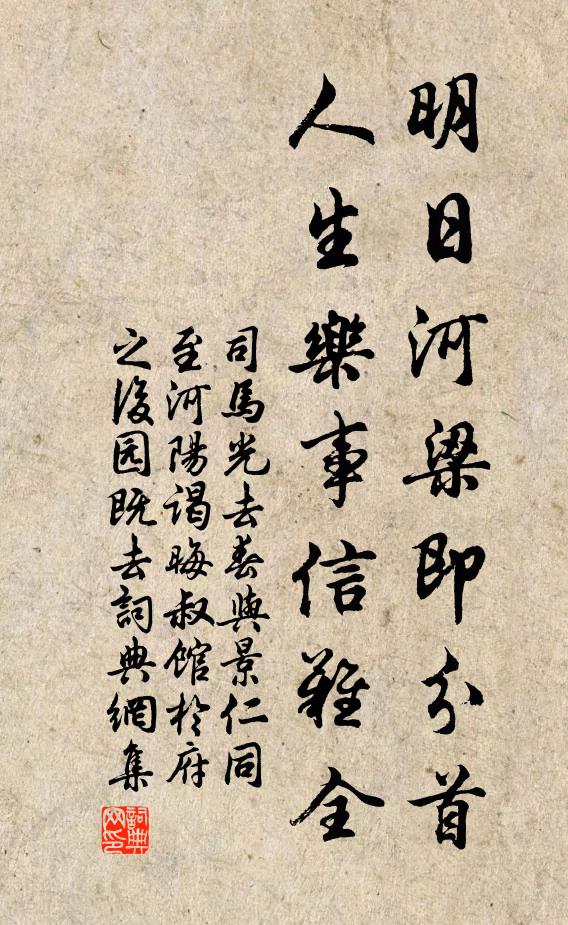 明日河梁即分首
人生樂事信難全
司馬光去春與景仁同
至河陽謁晦叔館於府
之後园既去詞典網集
詞典網印